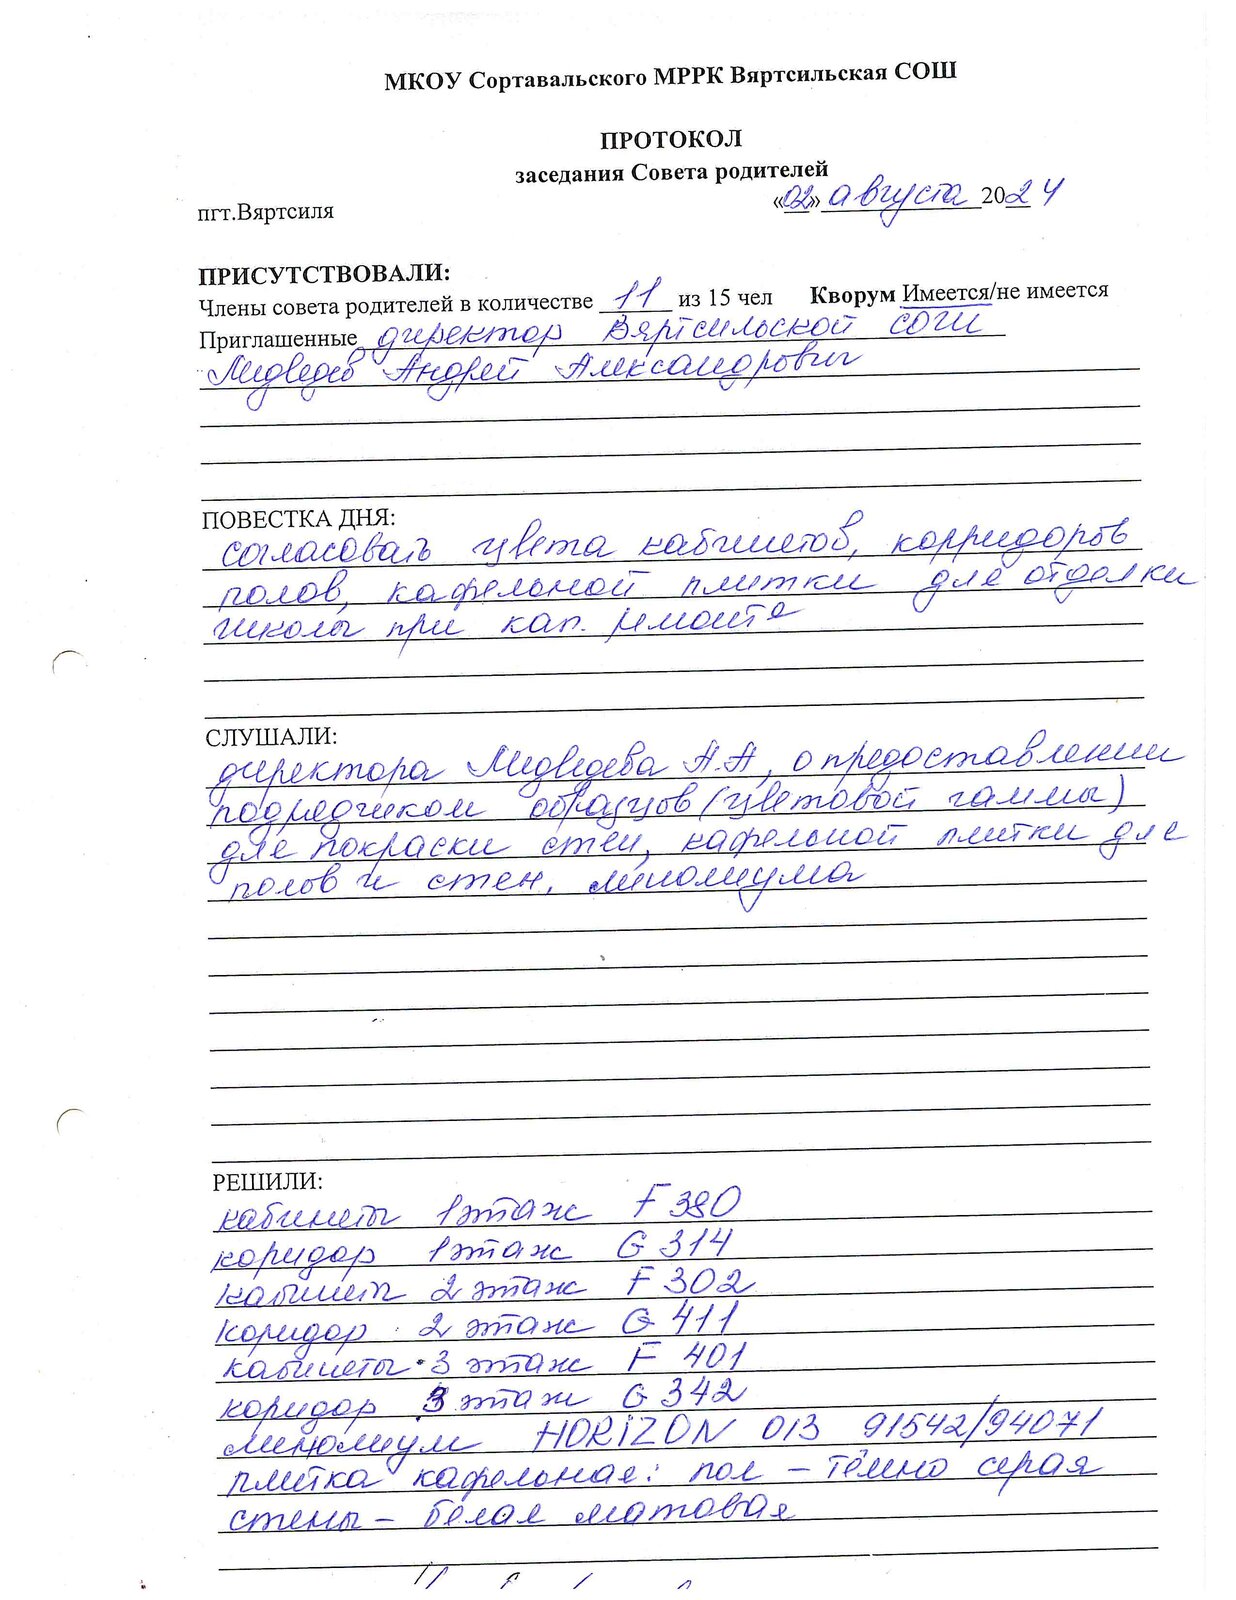 МКОУ Сортавальского МРРК Вяртсильская СОШ
ПРОТОКОЛ
заседания Совета родителей
пгт.Вяртсиля «02» августа 2024
ПРИСУТСТВОВАЛИ:
Члены совета родителей в количестве 11 из 15 чел Кворум Имеется/не имеется
Приглашенные директор Вяртсильской СОШ
Медведев Андрей Александрович
ПОВЕСТКА ДНЯ:
согласовать цвета кабинетов, корридоров
полов, кафельной плитки для отделки
школы при кап. ремонте
СЛУШАЛИ:
директора Медведева А.А, о предоставлении
подрядчиком образцов (цветовой гаммы)
для покраски стен, кафельной плитки для
полов и стен, линолиума
РЕШИЛИ:
кабинеты 1 этаж F 380
коридор 1 этаж G 314
кабинеты 2 этаж F 302
коридор 2 этаж G 411
кабинеты 3 этаж F 401
коридор 3 этаж G 342
линолиум HORIZON 013 91542/94071
плитка кафельная: пол – тёмно серая
стены – белая матовая